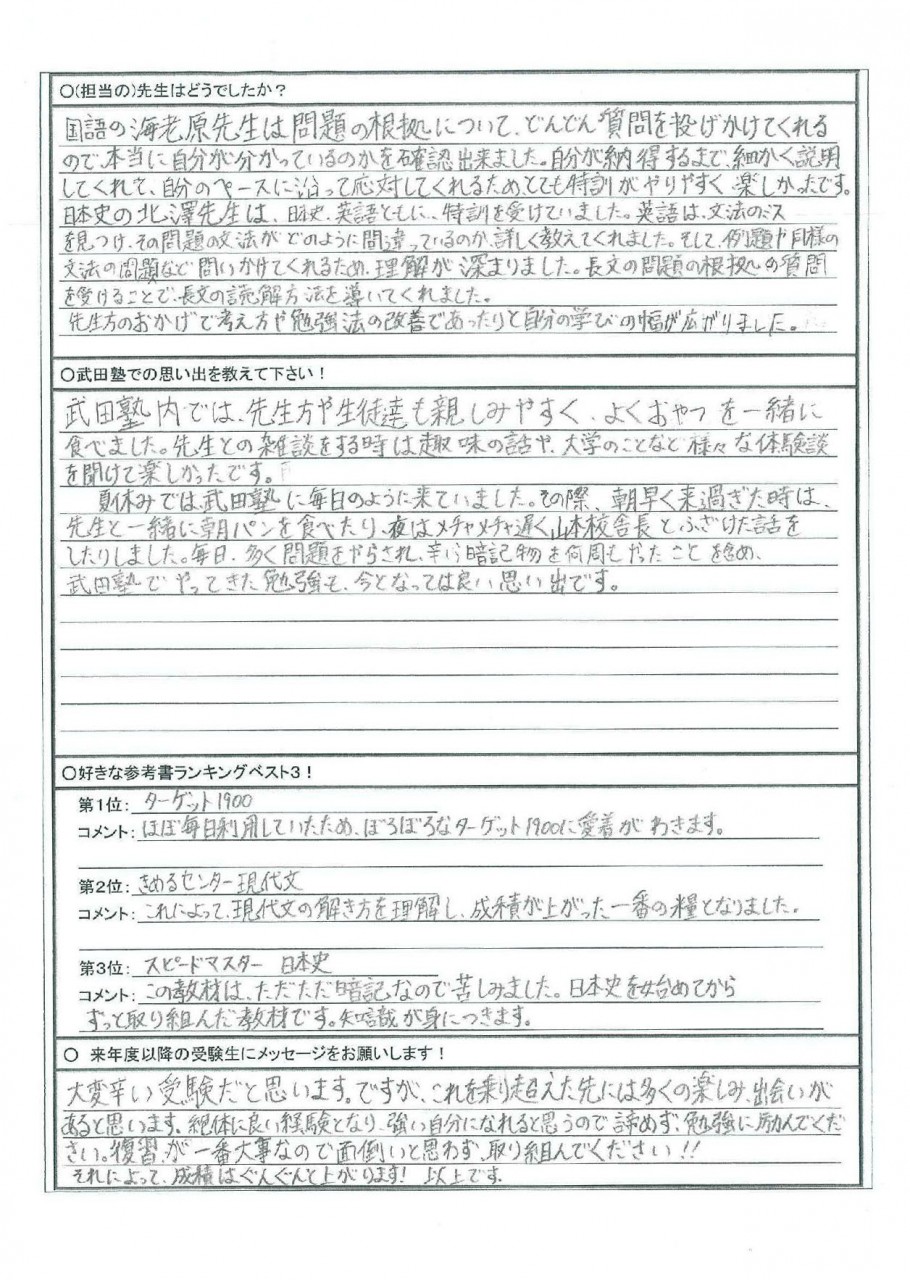 ○(担当の)先生はどうでしたか？
国語の海老原先生は問題の根拠について、どんどん質問を投げかけてくれる
ので、本当に自分が分かっているのかを確認出来ました。自分が納得するまで、細かく説明
してくれて、自分のペースに沿って応対してくれるためとても特訓がやりやすく楽しかったです。
日本史の北澤先生は、日本史、英語ともに、特訓を受けていました。英語は、文法のミス
を見つけ、その問題の文法がどのように間違っているのか、詳しく教えてくれました。そして、例題や同様の
文法の問題など問いかけてくれるため、理解が深まりました。長文の問題の根拠の質問
を受けることで、長文の読解方法を導いてくれました。
先生方のおかげで考え方や勉強法の改善であったりと自分の学びの幅が広がりました。
○武田塾での思い出を教えて下さい！
武田塾内では、先生方や生徒達も親しみやすく、よくおやつを一緒に
食べました。先生との雑談をする時は趣味の話や、大学のことなど様々な体験談
を聞けて楽しかったです。
夏休みでは、武田塾に毎日のように来ていました。その際、朝早く来過ぎた時は、
先生と一緒に朝パンを食べたり、夜はメチャメチャ遅く山本校舎長とふざけた話を
したりしました。毎日、多く問題をやらされ、辛い暗記物を何周もやったことを含め、
武田塾でやってきた勉強も、今となっては良い思い出です。
○好きな参考書ランキングベスト3！
第1位: ターゲット1900
コメント: ほぼ毎日利用していたため、ぼろぼろなターゲット1900に愛着がわきます。
第2位: きめるセンター現代文
コメント: これによって、現代文の解き方を理解し、成積が上がった一番の糧となりました。
第3位: スピードマスター 日本史
コメント: この教材は、ただただ暗記なので苦しみました。日本史を始めてから
ずっと取り組んだ教材です。知識が身につきます。
○ 来年度以降の受験生にメッセージをお願いします！
大変辛い受験だと思います。ですが、これを乗り超えた先には多くの楽しみ、出会いが
あると思います。絶体に良い経験となり、強い自分になれると思うので諦めず、勉強に励んでくだ
さい。復習が一番大事なので面倒いと思わず、取り組んでください!!
それによって、成積はぐんぐんと上がります! 以上です。